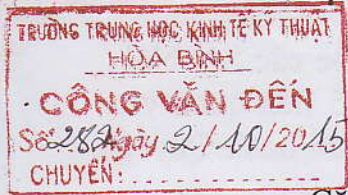 TRƯỜNG TRUNG HỌC KINH TẾ KỸ THUẬT
HÒA BÌNH
CÔNG VĂN ĐẾN
Số 282 Ngày 2/10/2015
CHUYỂN: